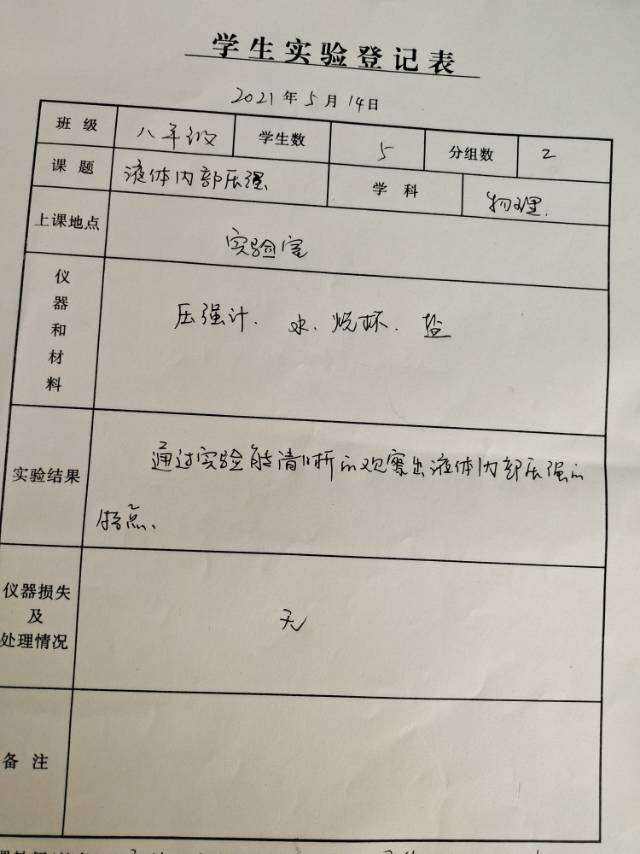 学生实验登记表
2021年5月14日
班级 八年级 学生数 5 分组数 2
课题 液体内部压强 学科 物理.
上课地点 实验室
仪器和材料 压强计. 水. 烧杯. 盐
实验结果 通过实验能清晰的观察出液体内部压强的
特点.
仪器损失
及
处理情况 无
备注